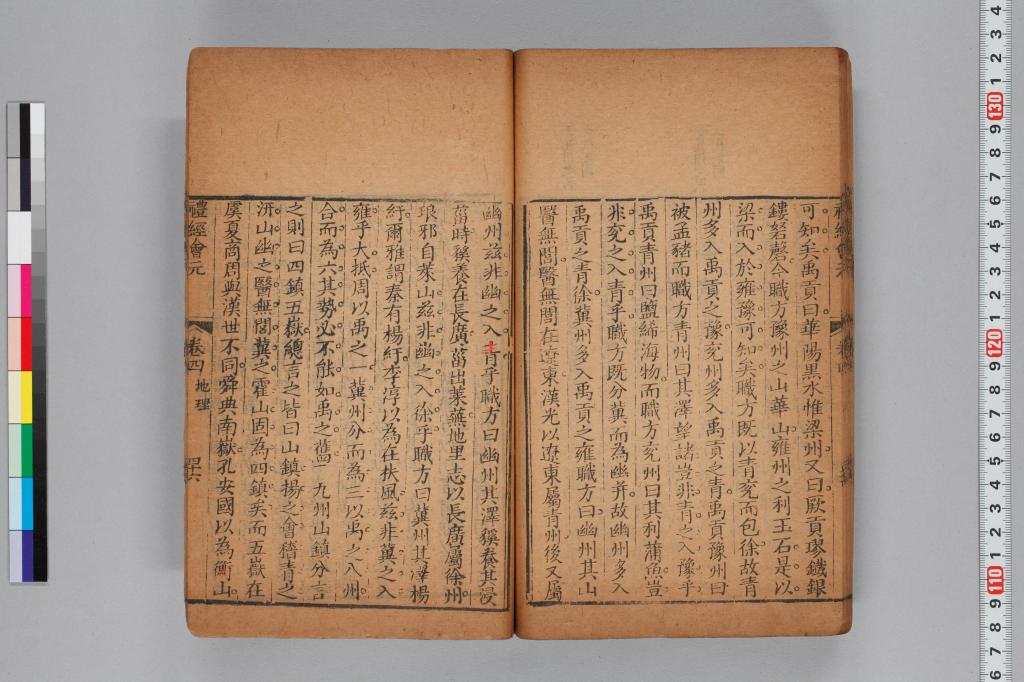 可知矣禹貢曰華陽黒水惟梁州又曰厥貢璆鐵銀
鏤砮磬今職方豫州之山華山雍州之利玉石是以
梁而入於雍豫可知矣職方既以青兖而包徐故青
州多入禹貢之豫兖州多入禹貢之青禹貢豫州曰
被孟豬而職方青州曰其澤望諸豈非青之入豫乎
禹貢青州曰鹽絺海物而職方兖州曰其利蒲魚豈
非兖之入青乎職方既分冀而為幽并故幽州多入
禹貢之青徐冀州多入禹貢之雍職方曰幽州其山
醫無閭醫無閭在遼東漢光以遼東屬青州後又屬
幽州兹非幽之入青乎職方曰幽州其澤貕養其浸
菑時貕養在長廣菑出萊蕪地里志以長廣屬徐州
琅邪自萊山兹非幽之入徐乎職方曰冀州其澤楊
紆爾雅謂秦有楊紆李淳以為在扶風兹非冀之入
雍乎大抵周以禹之一冀州分而為三以禹之八州
合而為六其勢必不能如禹之舊一九州山鎮分言
之則曰四鎮五嶽緫言之皆曰山鎮揚之會稽青之
沂山幽之醫無閭冀之霍山固為四鎮矣而五嶽在
虞夏商周與漢世不同舜典南嶽孔安國以為衡山
禮經會元
卷四
地理